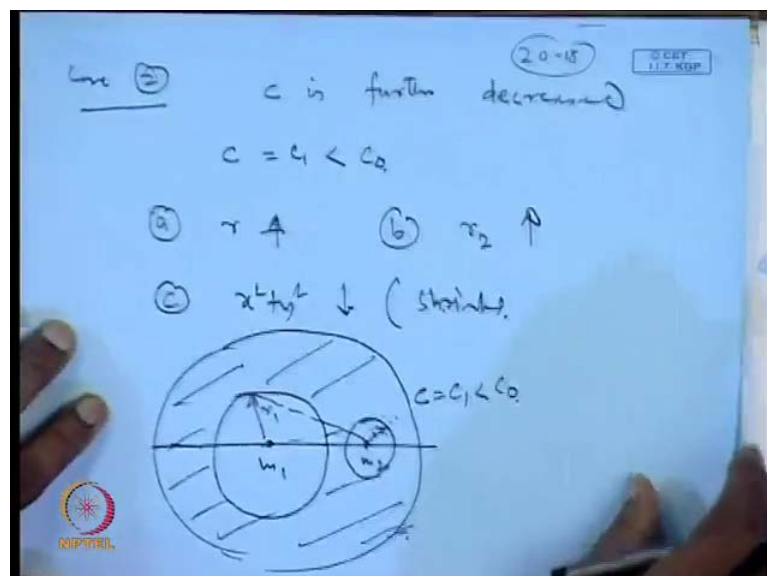 20-18
© CET
I.I.T. KGP
Case ②
C is further decreased
C = C₁ < C₀
ⓐ r ↑ ⓑ r₂ ↑
ⓒ x²+y² ↓ ( shrinks.
C = C₁ < C₀
r₁
m₁
NPTEL